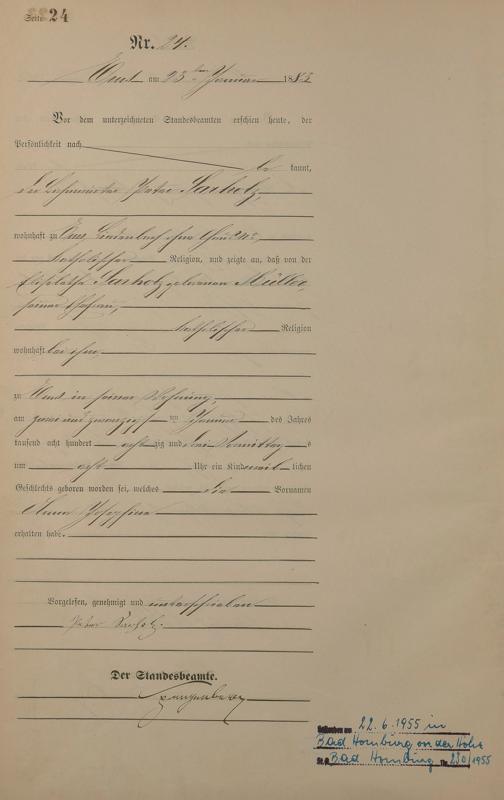 Seite 24
Nr. 24.
Ems am 23ten Januar 188
Vor dem unterzeichneten Standesbeamten erschien heute, der
Persönlichkeit nach
be kannt,
der Peter Sarholz,
wohnhaft zu Ems, Lindenbach
katholischer Religion, und zeigte an, daß von der
Elisabetha Sarholz geborenen Müller,
seiner Ehefrau,
katholischer Religion
wohnhaft bei ihm
zu Ems in seiner Wohnung,
am zwei und zwanzigsten Januar des Jahres
tausend acht hundert achtzig und drei Vormittags
um acht Uhr ein Kind weiblichen
Geschlechts geboren worden sei, welches die Vornamen
Anna Josephina
erhalten habe.
Vorgelesen, genehmigt und unterschrieben
Peter Sarholz.
Der Standesbeamte.
Spangenberg
Gestorben am 22.6.1955 in
Bad Homburg von der Höhe
St.A. Bad Homburg Nr. 230/1955